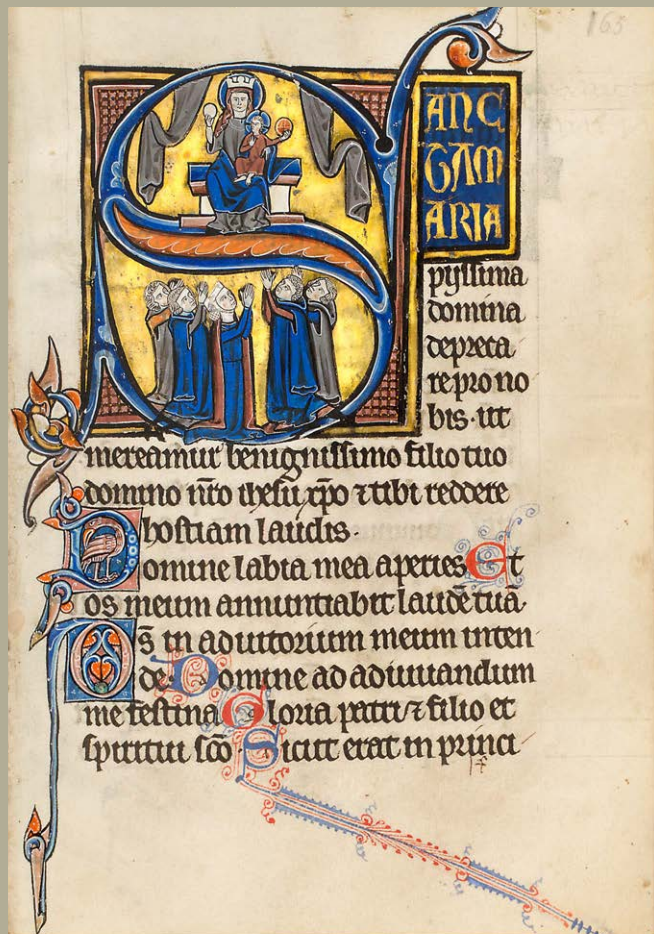 163
SANC
TAM
ARIA
pyssima
domina
depreca
re pro no
bis · ut
mereamur benignissimo filio tuo
domino nr̄o ihesu xp̄o ⁊ tibi reddere
hostiam laudis ·
Domine labia mea aperies Et
os meum annuntiabit laudē tuā ·
Ds̄ in adiutorium meum inten
de · Domine ad adiuuandum
me festina Gloria patri ⁊ filio et
spiritui sc̄o Sicut erat in princi